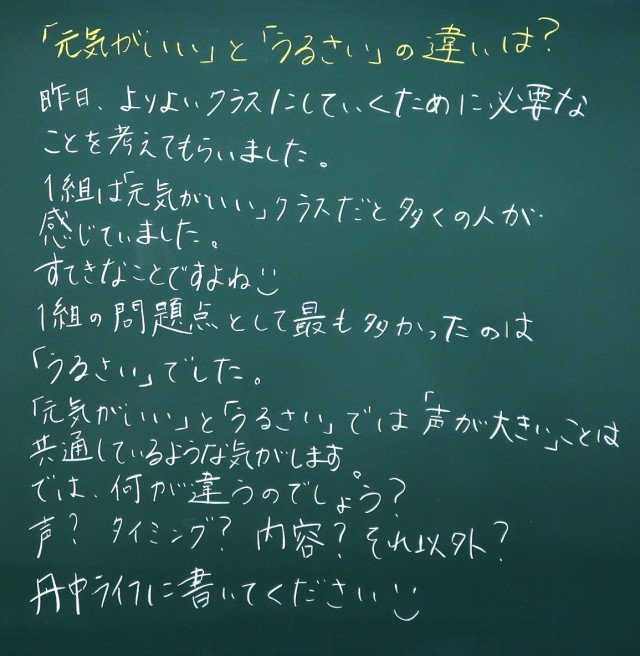 「元気がいい」と「うるさい」の違いは?
昨日、よりよいクラスにしていくために必要な
ことを考えてもらいました。
1組は「元気がいい」クラスだと多くの人が
感じていました。
すてきなことですよね
1組の問題点として最も多かったのは
「うるさい」でした。
「元気がいい」と「うるさい」では「声が大きい」ことは
共通しているような気がします。
では、何が違うのでしょう?
声? タイミング? 内容? それ以外?
丹中ライフに書いてください